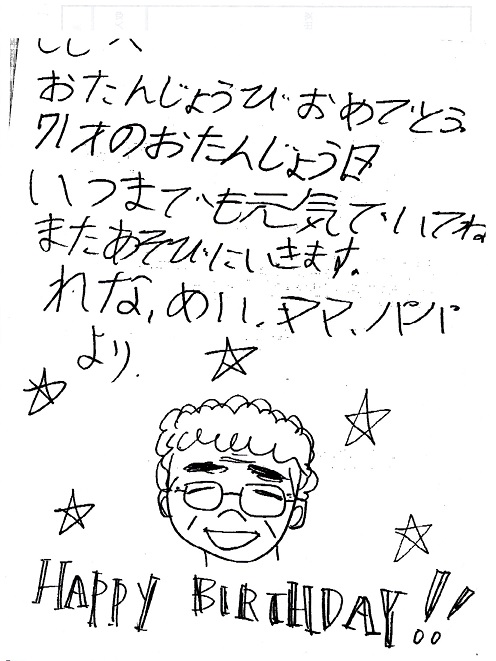 じじへ
おたんじょうびおめでとう
71才のおたんじょう日
いつまでも元気でいてね
またあそびにいきます。
れな、めい、ママ、パパ
より
HAPPY BIRTHDAY!!